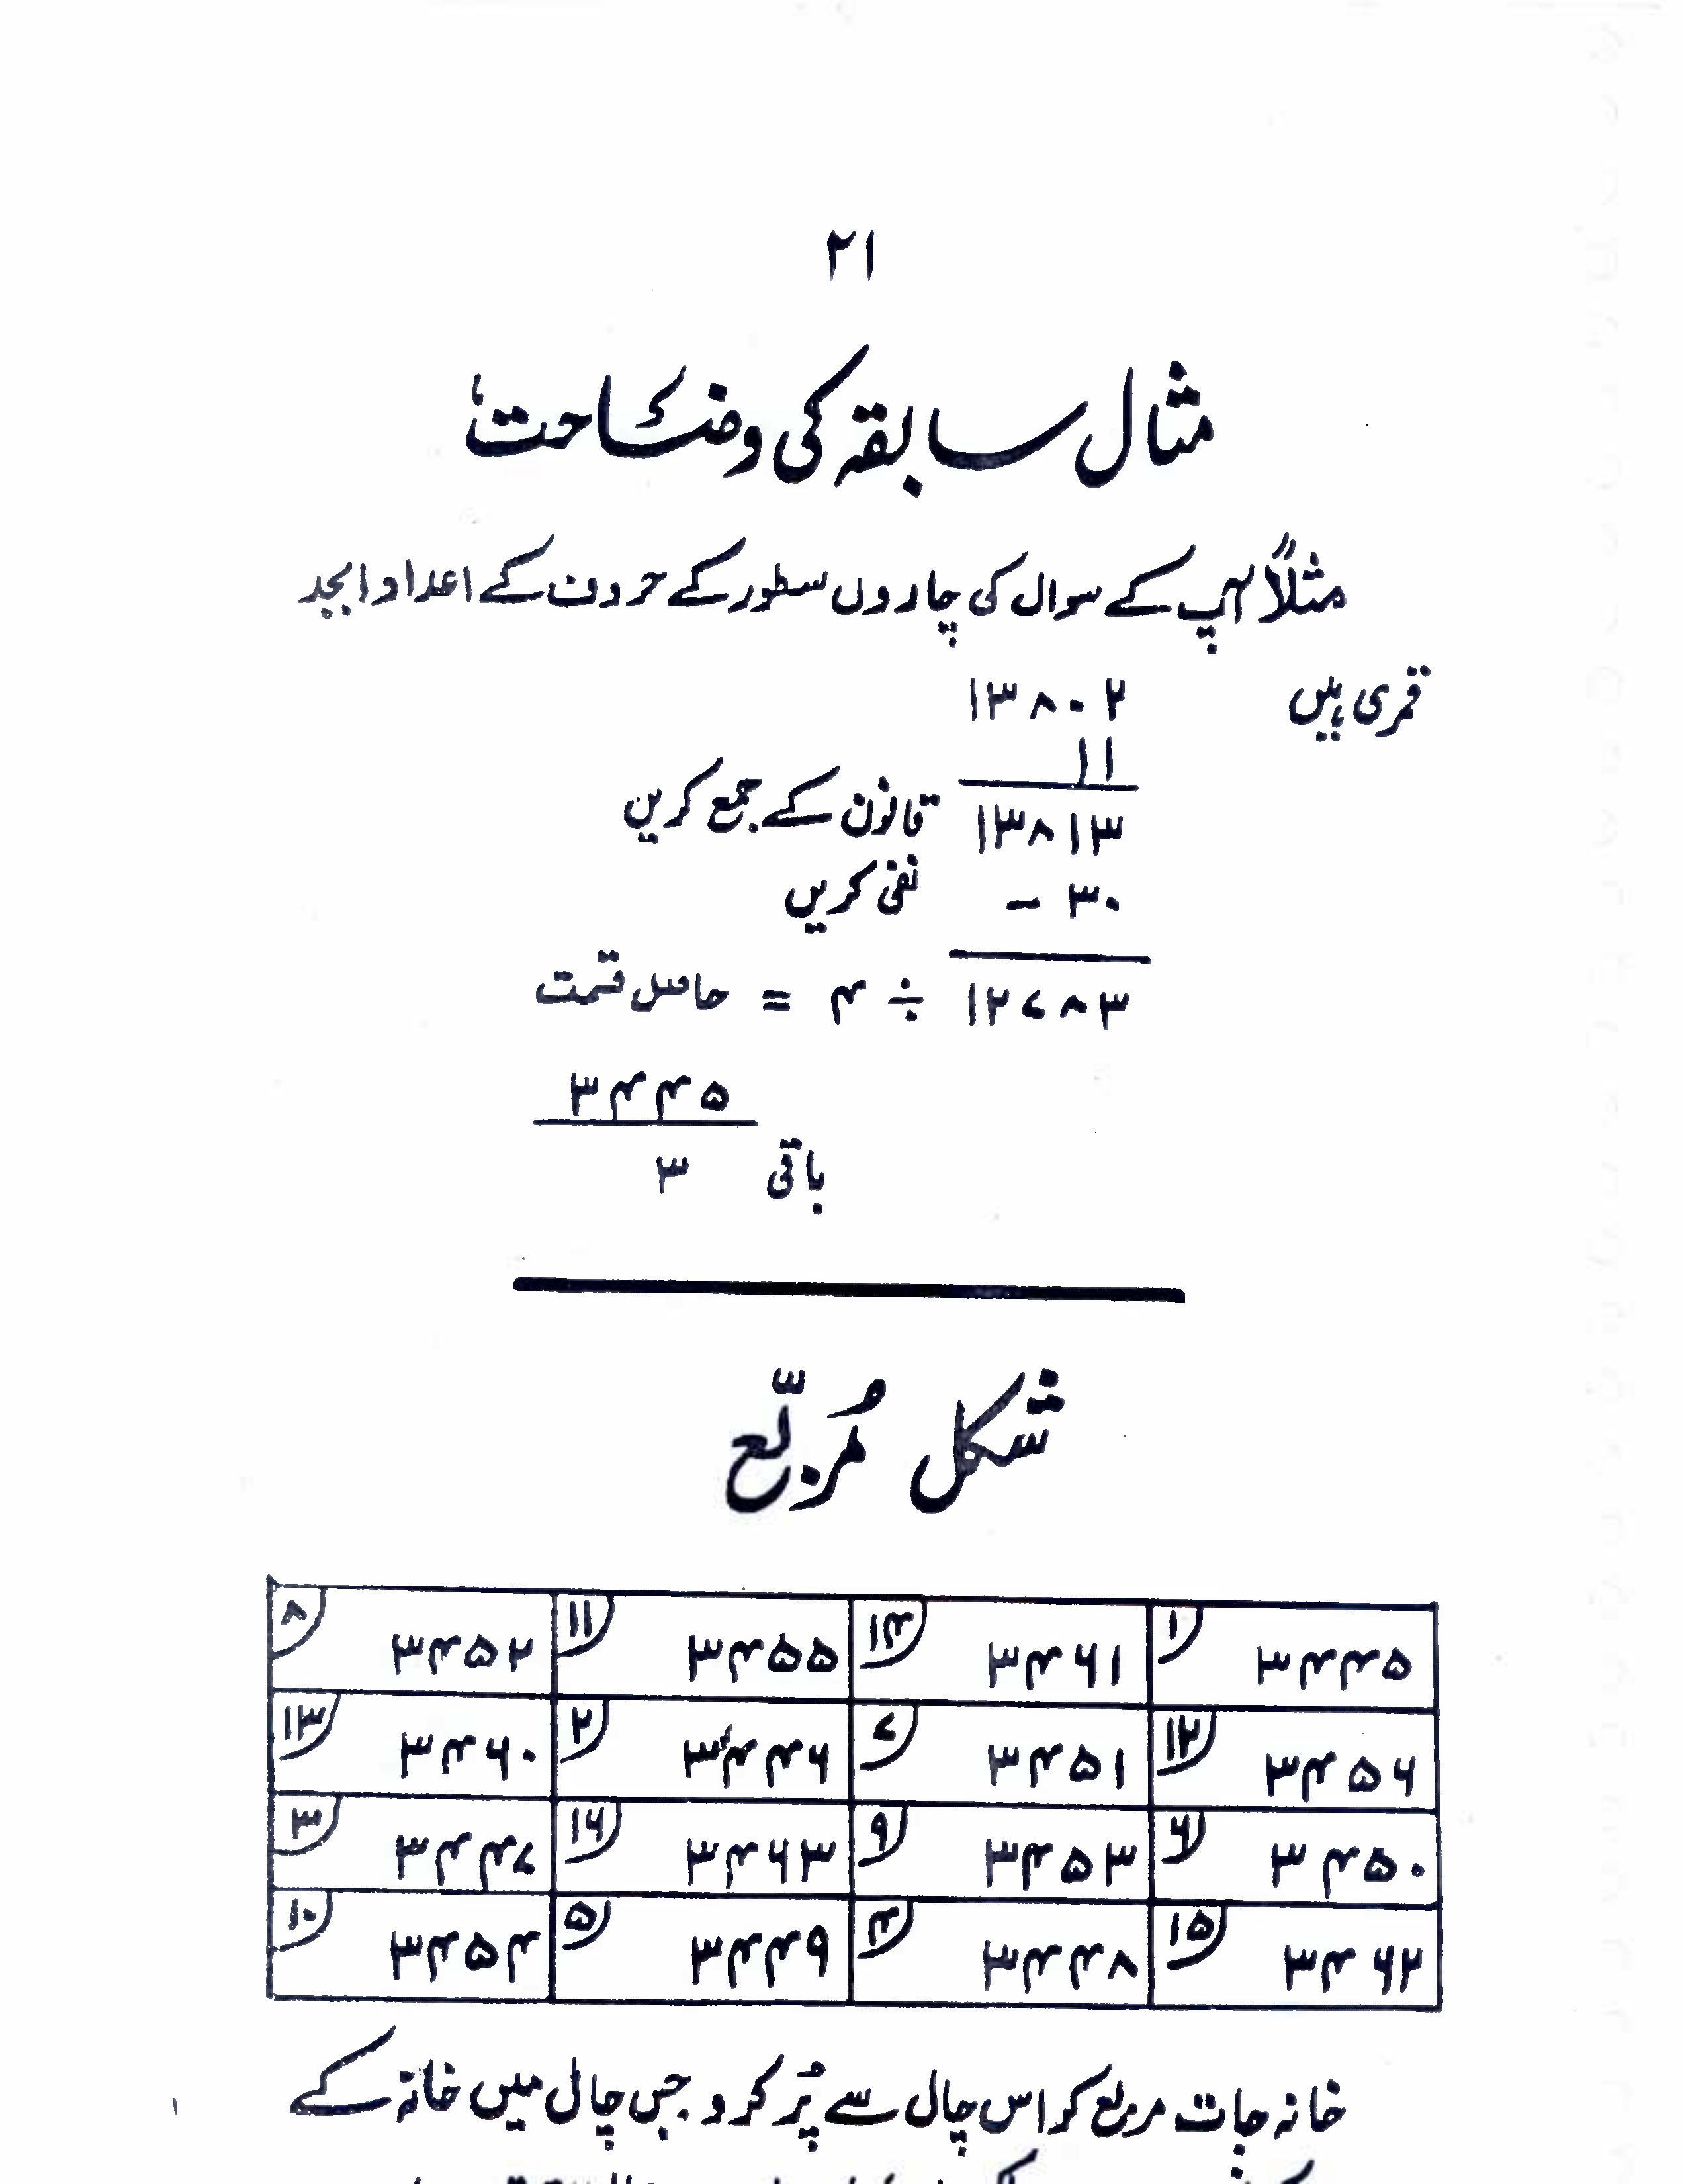 ۲۱
مثال سابقہ کی وضاحت
مثلاً آپ کے سوال کی چاروں سطور کے حروف کے اعداد ابجد
قمری ہیں ۱۳۸۰۲
۱۱
۱۳۸۱۳ قانون کے جمع کریں
۳۰ - نفی کریں
۱۲۷۸۳ ÷ ۴ = حاصل قسمت
۳۴۴۵
باقی ۳
شکل مُربّع
۱ ۳۴۴۵ ۱۴ ۳۴۶۱ ۱۱ ۳۴۵۵ ۸ ۳۴۵۲
۱۲ ۳۴۵۶ ۷ ۳۴۵۱ ۲ ۳۴۴۶ ۱۳ ۳۴۶۰
۶ ۳۴۵۰ ۹ ۳۴۵۳ ۱۶ ۳۴۶۳ ۳ ۳۴۴۷
۱۵ ۳۴۶۲ ۴ ۳۴۴۸ ۵ ۳۴۴۹ ۱۰ ۳۴۵۴
خانہ جات مربع کو اس چال سے پُر کرو جس چال میں خانہ کے